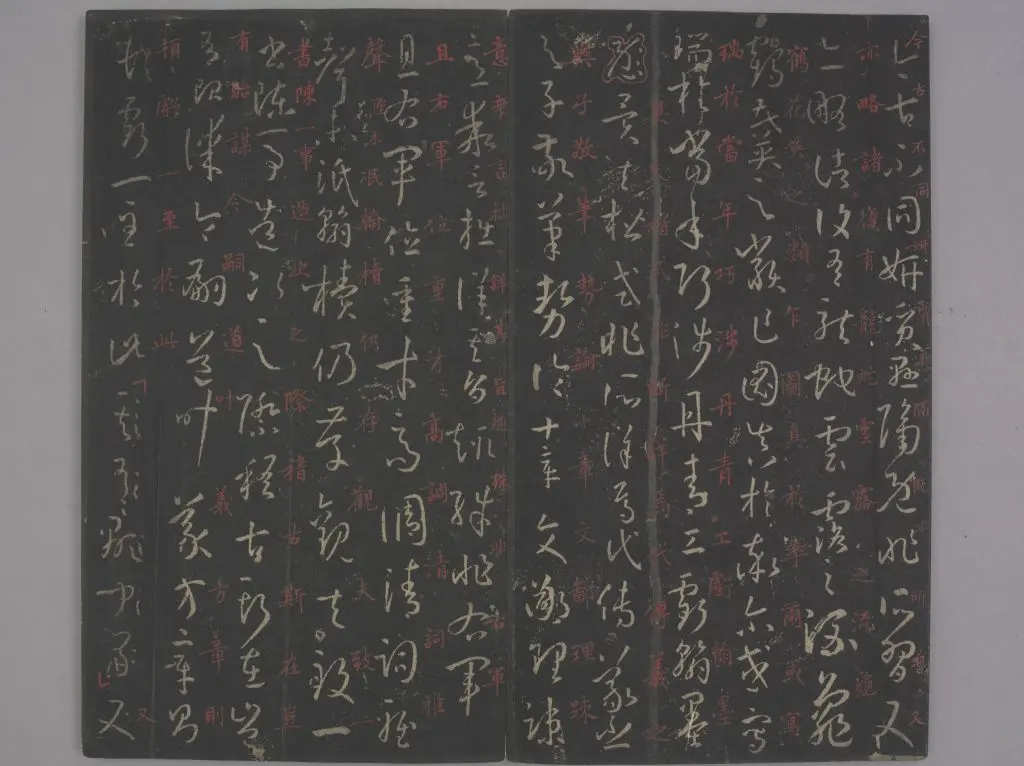 今古不同妍質懸隔既非所習又
亦略諸復有龍蛇雲露之流龜
鶴花英之類乍圖真於率爾或寫
瑞於當年巧涉丹青工虧翰墨
異夫楷式非所詳焉代傳羲之
與子敬筆勢論十章文鄙理疎
意乖言拙詳其旨趣殊非右軍
且右軍位重才高調清詞雅
聲塵未泯翰櫝仍存觀夫致一
書陳一事造次之際稽古斯在豈
有貽謀令嗣道叶義方章則
頓虧一至於此又